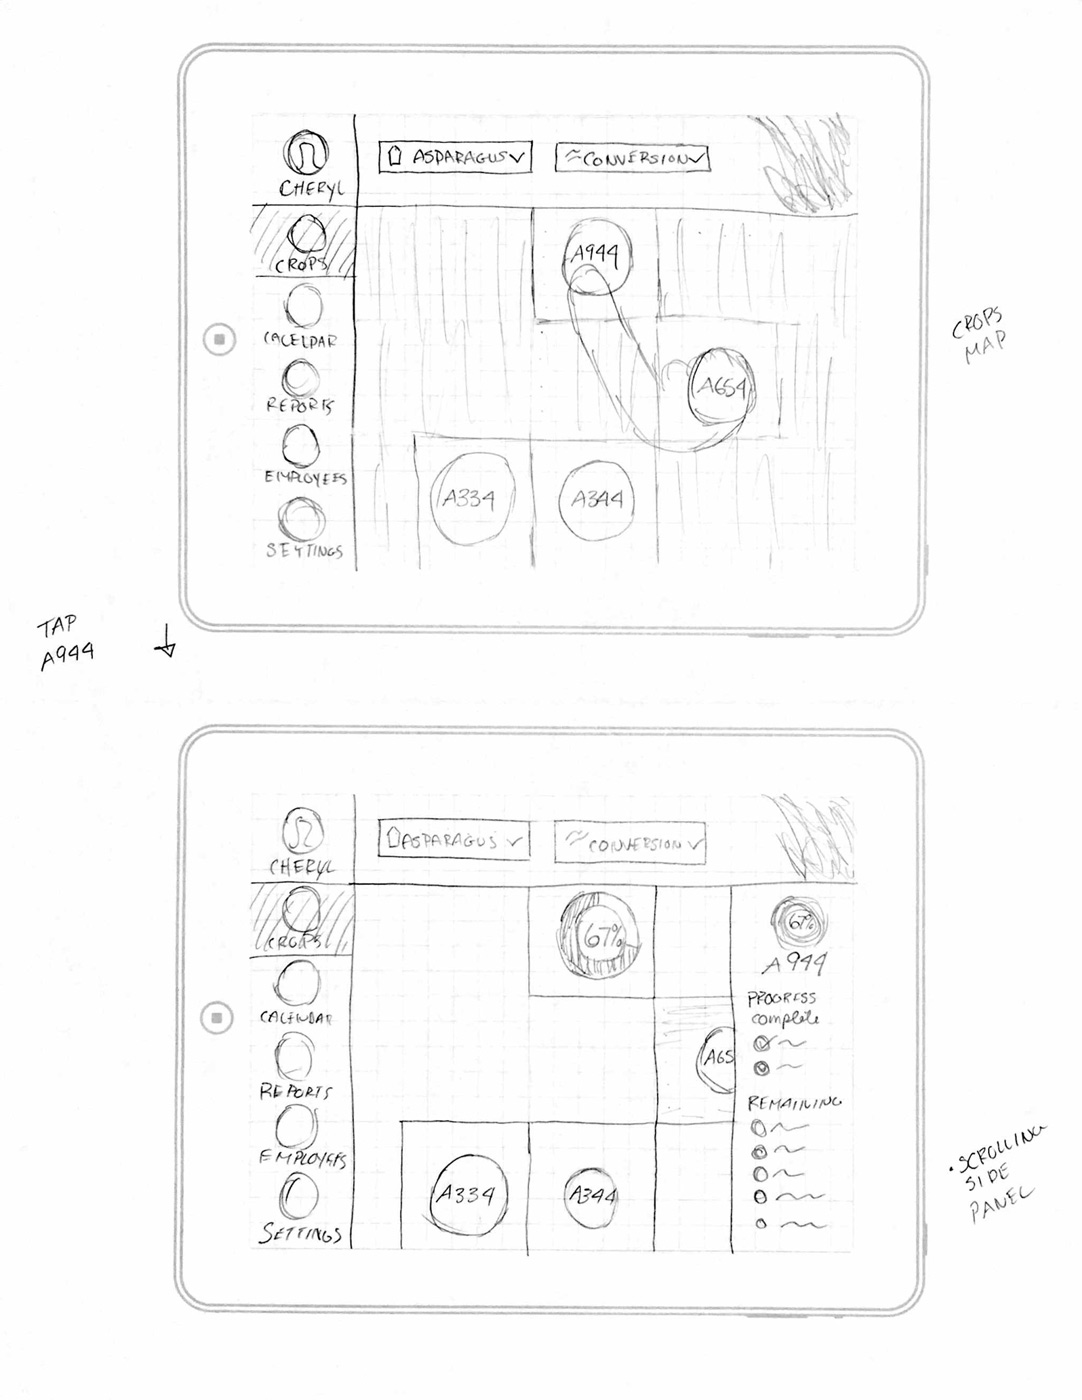 CHERYL
ASPARAGUS
CONVERSION
CROPS
CALELDAR
REPORTS
EMPLOYEES
SETTINGS
A944
A654
A334
A344
CROPS
MAP
TAP
A944
CHERYL
ASPARAGUS
CONVERSION
CROPS
CALENDAR
REPORTS
EMPLOYEES
SETTINGS
67%
A65
A334
A344
67%
A944
PROGRESS
complete
REMAINING
• SCROLLING
SIDE
PANEL